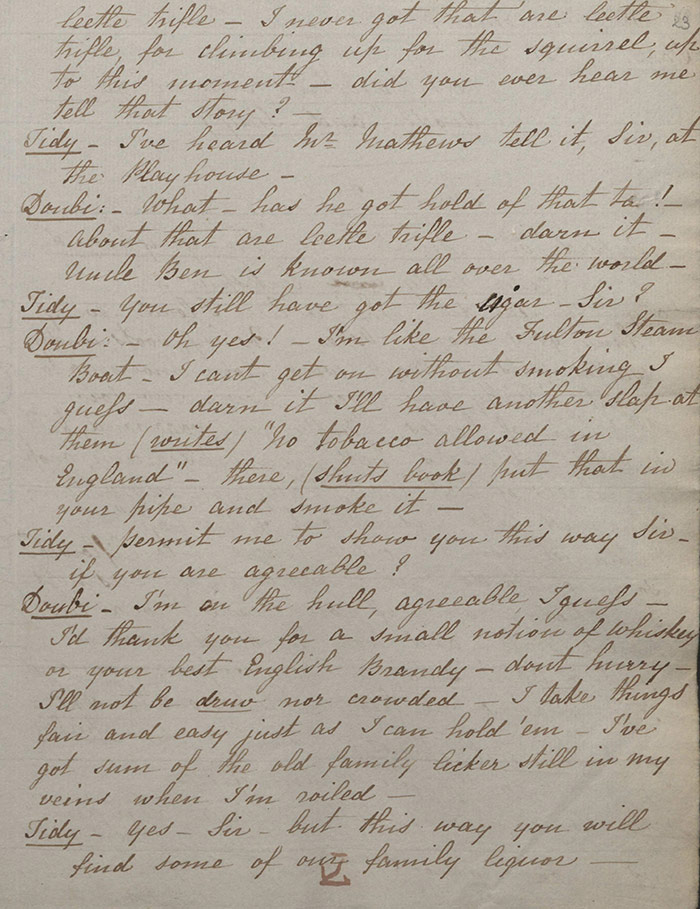 leetle trifle – I never got that are leetle
trifle, for climbing up for the squirrel, up
to this moment – did you ever hear me
tell that story? –
Tidy – I've heard Mr. Mathews tell it, Sir, at
the Playhouse –
Doubi: – What – has he got hold of that ta! –
About that are leetle trifle – darn it –
Uncle Ben is known all over the world –
Tidy – You still have got the sigar – Sir?
Doubi: – Oh yes! – I'm like the Fulton Steam
Boat – I cant get on without smoking I
guess – darn it I'll have another slap at
them (writes) "No tobacco allowed in
England" – there, (shuts book) put that in
your pipe and smoke it –
Tidy – permit me to show you this way Sir –
if you are agreeable?
Doubi – I'm on the hull, agreeable I guess –
I'd thank you for a small notion of whiskey
or your best English Brandy – dont hurry –
I'll not be druv nor crowded – I take things
fair and easy just as I can hold 'em – I've
got sum of the old family licker still in my
veins when I'm roiled –
Tidy – Yes – Sir – but this way you will
find some of our family liquor –